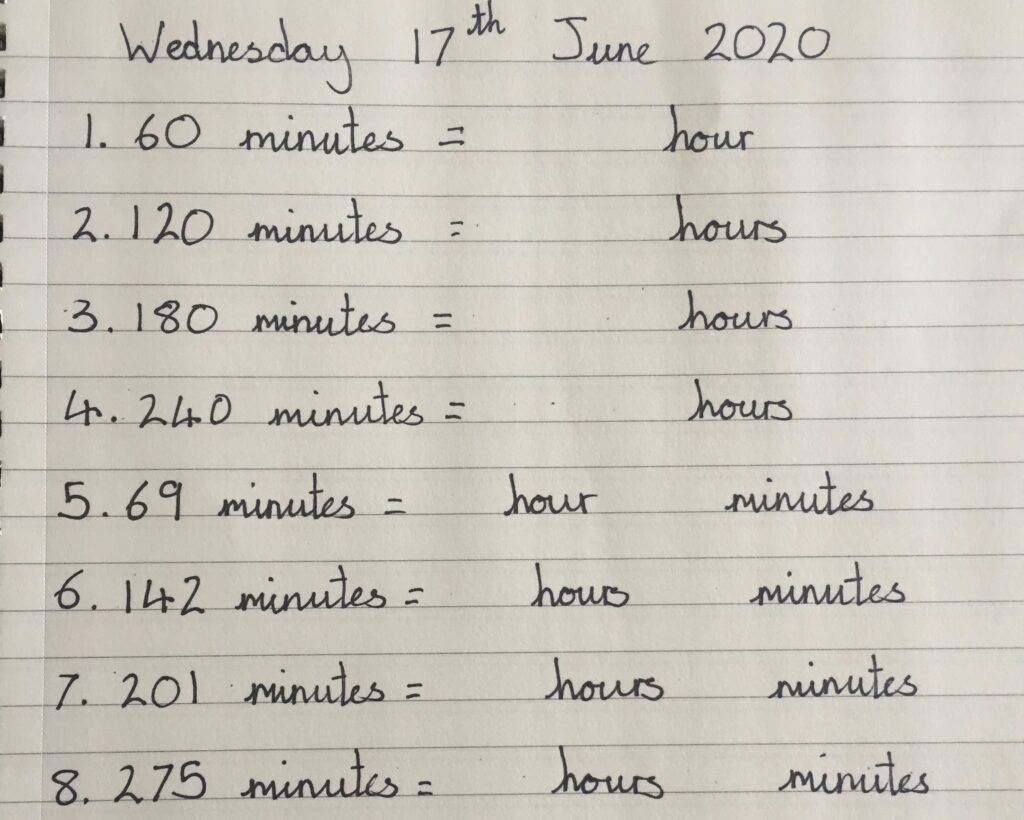 Wednesday 17th June 2020
1. 60 minutes = hour
2. 120 minutes = hours
3. 180 minutes = hours
4. 240 minutes = hours
5. 69 minutes = hour minutes
6. 142 minutes = hours minutes
7. 201 minutes = hours minutes
8. 275 minutes = hours minutes